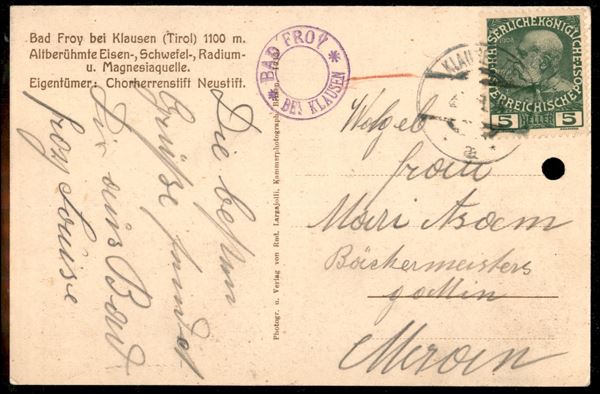 Bad Froy bei Klausen (Tirol) 1100 m.
Altberühmte Eisen-, Schwefel-, Radium-
u. Magnesiaquelle.
Eigentümer: Chorherrenstift Neustift.
* BAD FROY *
BEI KLAUSEN
Die besten
Grüße sendet
Dir aus Bad
froy Louise
Photogr. u. Verlag von Rud. Largajolli, Kammerphotograph
KAISERLICHEKÖNIGLICHE
ÖSTERREICHISCHEPOST
1908
5 HELLER 5
KLAU
a
frau
Mari Azam
Bäckermeisters
gattin
Meran